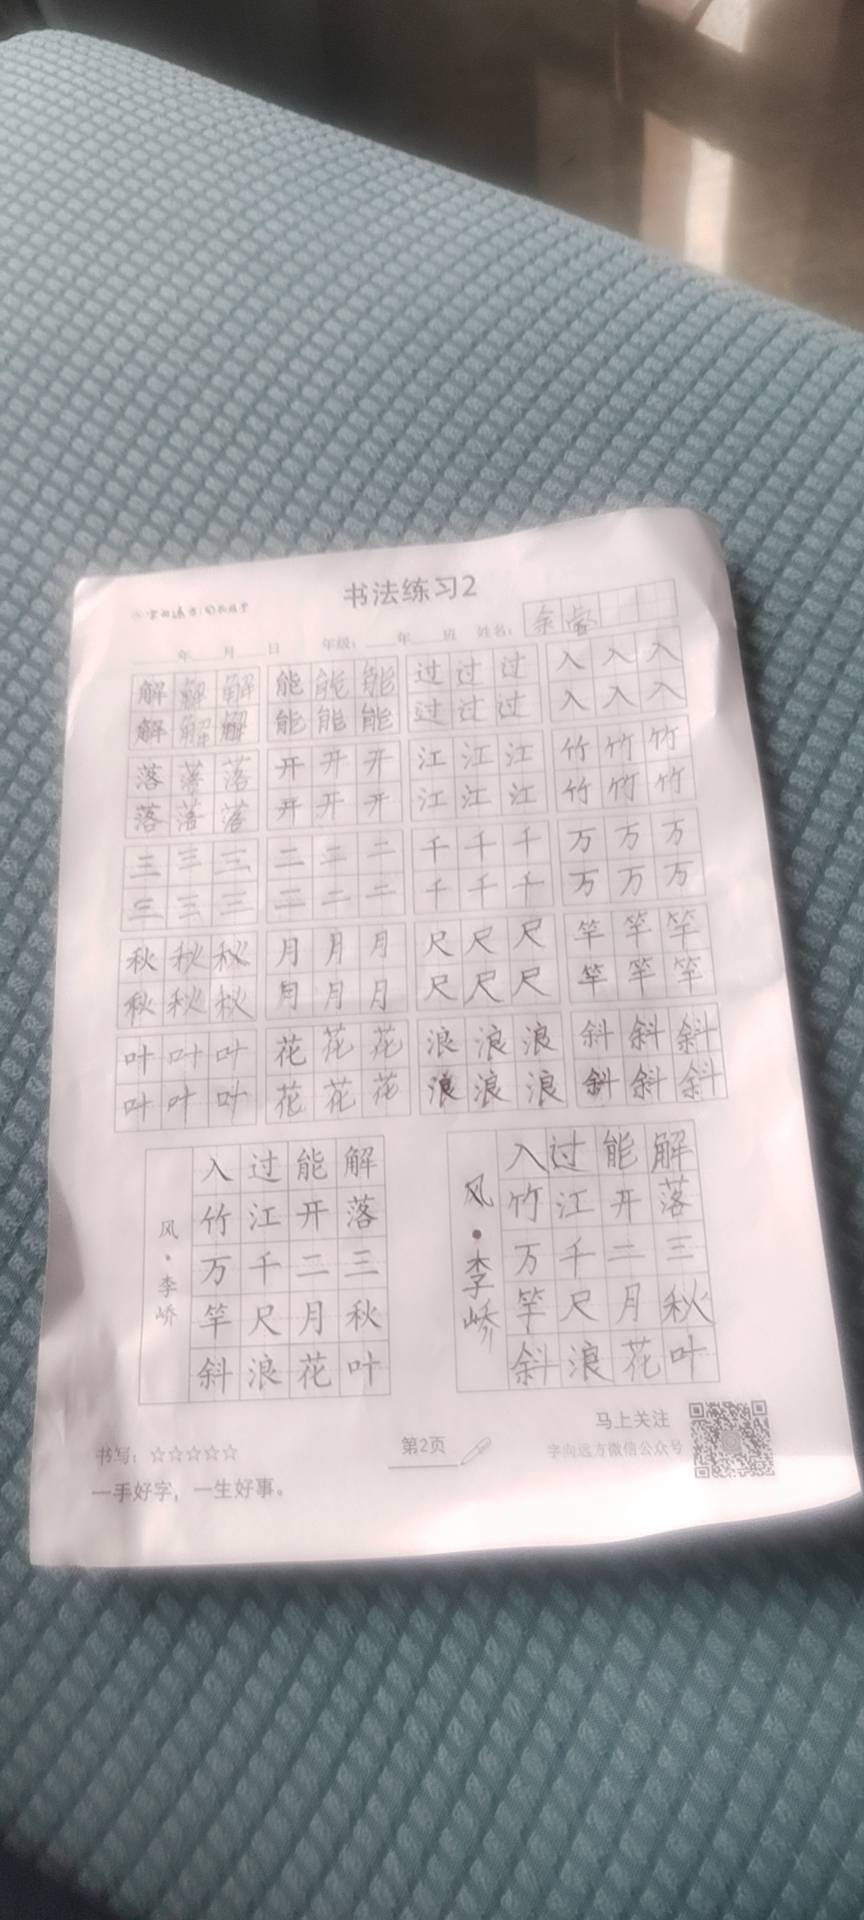 书法练习2
年 月 日 年级： 年 班 姓名：余睿
解解解 能能能 过过过 入入入
解解解 能能能 过过过 入入入
落落落 开开开 江江江 竹竹竹
落落落 开开开 江江江 竹竹竹
三三三 二二二 千千千 万万万
三三三 二二二 千千千 万万万
秋秋秋 月月月 尺尺尺 竿竿竿
秋秋秋 月月月 尺尺尺 竿竿竿
叶叶叶 花花花 浪浪浪 斜斜斜
叶叶叶 花花花 浪浪浪 斜斜斜
解落三秋叶
能开二月花
过江千尺浪
入竹万竿斜
风·李峤
解落三秋叶
能开二月花
过江千尺浪
入竹万竿斜
风·李峤
书写：☆☆☆☆☆
一手好字，一生好事。
第2页
马上关注
字向远方微信公众号